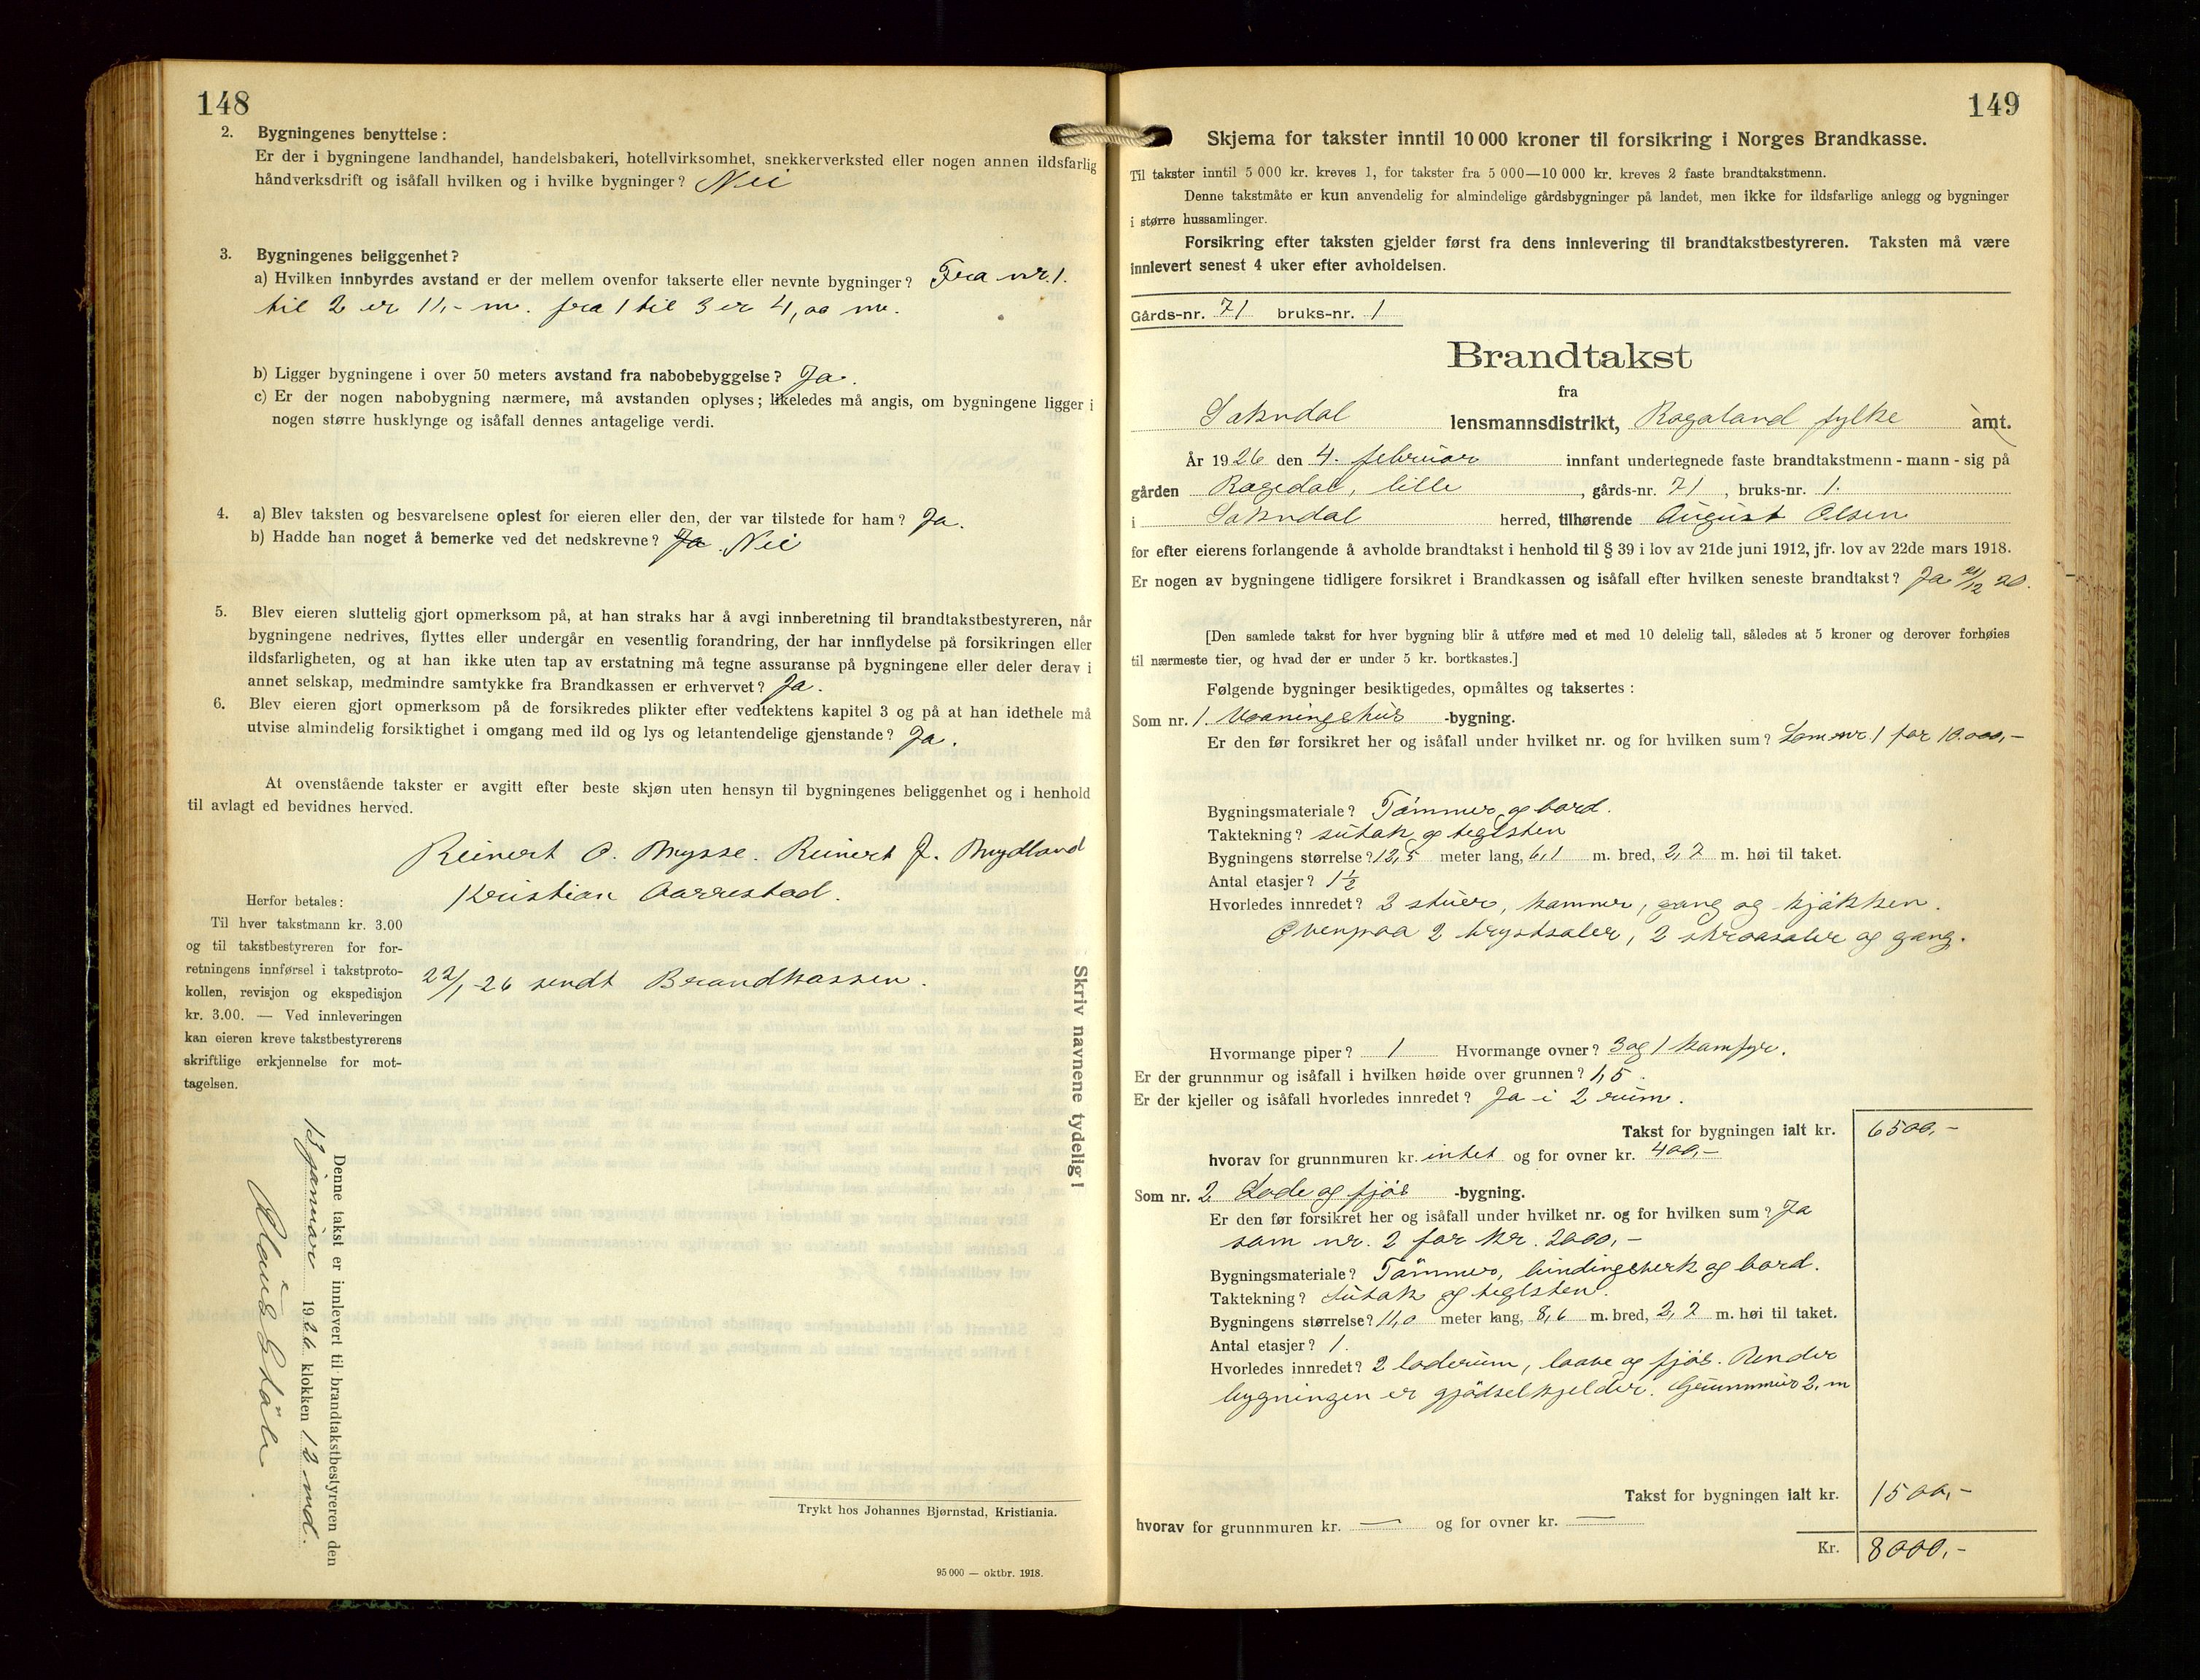 148
2. Bygningenes benyttelse:
Er der i bygningene landhandel, handelsbakeri, hotellvirksomhet, snekkerverksted eller nogen annen ildsfarlig
håndverksdrift og isåfall hvilken og i hvilke bygninger? Nei
3. Bygningenes beliggenhet?
a) Hvilken innbyrdes avstand er der mellem ovenfor takserte eller nevnte bygninger? Fra nr. 1.
til 2 er 11,- m. fra 1 til 3 er 4,00 m.
b) Ligger bygningene i over 50 meters avstand fra nabobebyggelse? Ja.
c) Er der nogen nabobygning nærmere, må avstanden oplyses; likeledes må angis, om bygningene ligger i
nogen større husklynge og isåfall dennes antagelige verdi.
4. a) Blev taksten og besvarelsene oplest for eieren eller den, der var tilstede for ham? Ja.
b) Hadde han noget å bemerke ved det nedskrevne? Ja. Nei
5. Blev eieren sluttelig gjort opmerksom på, at han straks har å avgi innberetning til brandtakstbestyreren, når
bygningene nedrives, flyttes eller undergår en vesentlig forandring, der har innflydelse på forsikringen eller
ildsfarligheten, og at han ikke uten tap av erstatning må tegne assuranse på bygningene eller deler derav i
annet selskap, medmindre samtykke fra Brandkassen er erhvervet? Ja.
6. Blev eieren gjort opmerksom på de forsikredes plikter efter vedtektens kapitel 3 og på at han idethele må
utvise almindelig forsiktighet i omgang med ild og lys og letantendelige gjenstande? Ja.
At ovenstående takster er avgitt efter beste skjøn uten hensyn til bygningenes beliggenhet og i henhold
til avlagt ed bevidnes herved.
Reinert O. Mysse. Reinert J. Mydland
Kristian Aarrestad.
Herfor betales:
Til hver takstmann kr. 3.00
og til takstbestyreren for for-
retningens innførsel i takstproto-
kollen, revisjon og ekspedisjon
kr. 3.00. — Ved innleveringen
kan eieren kreve takstbestyrerens
skriftlige erkjennelse for mot-
tagelsen.
22/1-26 sendt Brandkassen.
Skriv navnene tydelig!
Denne takst er innlevert til brandtakstbestyreren den
januar 1926 klokken 12 md.
Trykt hos Johannes Bjørnstad, Kristiania.
95 000 — oktbr. 1918.
149
Skjema for takster inntil 10 000 kroner til forsikring i Norges Brandkasse.
Til takster inntil 5 000 kr. kreves 1, for takster fra 5 000—10 000 kr. kreves 2 faste brandtakstmenn.
Denne takstmåte er kun anvendelig for almindelige gårdsbygninger på landet, men ikke for ildsfarlige anlegg og bygninger
i større hussamlinger.
Forsikring efter taksten gjelder først fra dens innlevering til brandtakstbestyreren. Taksten må være
innlevert senest 4 uker efter avholdelsen.
Gårds-nr. 71 bruks-nr. 1
Brandtakst
fra
Sokndal lensmannsdistrikt, Rogaland fylke amt.
År 1926 den 4. februar innfant undertegnede faste brandtakstmenn - mann - sig på
gården Ragedal, lille, gårds-nr. 71, bruks-nr. 1.
i Sokndal herred, tilhørende August Olsen
for efter eierens forlangende å avholde brandtakst i henhold til § 39 i lov av 21de juni 1912, jfr. lov av 22de mars 1918.
Er nogen av bygningene tidligere forsikret i Brandkassen og isåfall efter hvilken seneste brandtakst? Ja 21/12 20.
[Den samlede takst for hver bygning blir å utføre med et med 10 delelig tall, således at 5 kroner og derover forhøies
til nærmeste tier, og hvad der er under 5 kr. bortkastes.]
Følgende bygninger besiktigedes, opmåltes og taksertes:
Som nr. 1. Vaaningshus -bygning.
Er den før forsikret her og isåfall under hvilket nr. og for hvilken sum? Som nr. 1 for 10.000,-
Bygningsmateriale? Tømmer og bord.
Taktekning? sutak og teglsten
Bygningens størrelse? 12,5 meter lang, 6,1 m. bred, 2,7 m. høi til taket.
Antal etasjer? 1½
Hvorledes innredet? 2 stuer, kammer, gang og kjøkken.
Ovenpaa 2 brystsaler, 2 skraasaler og gang.
Hvormange piper? 1 Hvormange ovner? 3 og 1 komfyr.
Er der grunnmur og isåfall i hvilken høide over grunnen? 1,5.
Er der kjeller og isåfall hvorledes innredet? Ja i 2 rum.
Takst for bygningen ialt kr. 6500,-
hvorav for grunnmuren kr. intet og for ovner kr. 400,-
Som nr. 2 Lade og fjøs -bygning.
Er den før forsikret her og isåfall under hvilket nr. og for hvilken sum? Ja
som nr. 2 for kr. 2000,-
Bygningsmateriale? Tømmer, bindingsverk og bord.
Taktekning? Sutak og teglsten.
Bygningens størrelse? 11,0 meter lang, 8,6 m. bred, 2,7 m. høi til taket.
Antal etasjer? 1.
Hvorledes innredet? 2 laderum, laave og fjøs. Under
bygningen er gjødselkjelder. Grunnmur 2, m
Takst for bygningen ialt kr. 1500,-
hvorav for grunnmuren kr. — og for ovner kr. —
Kr. 8000,-